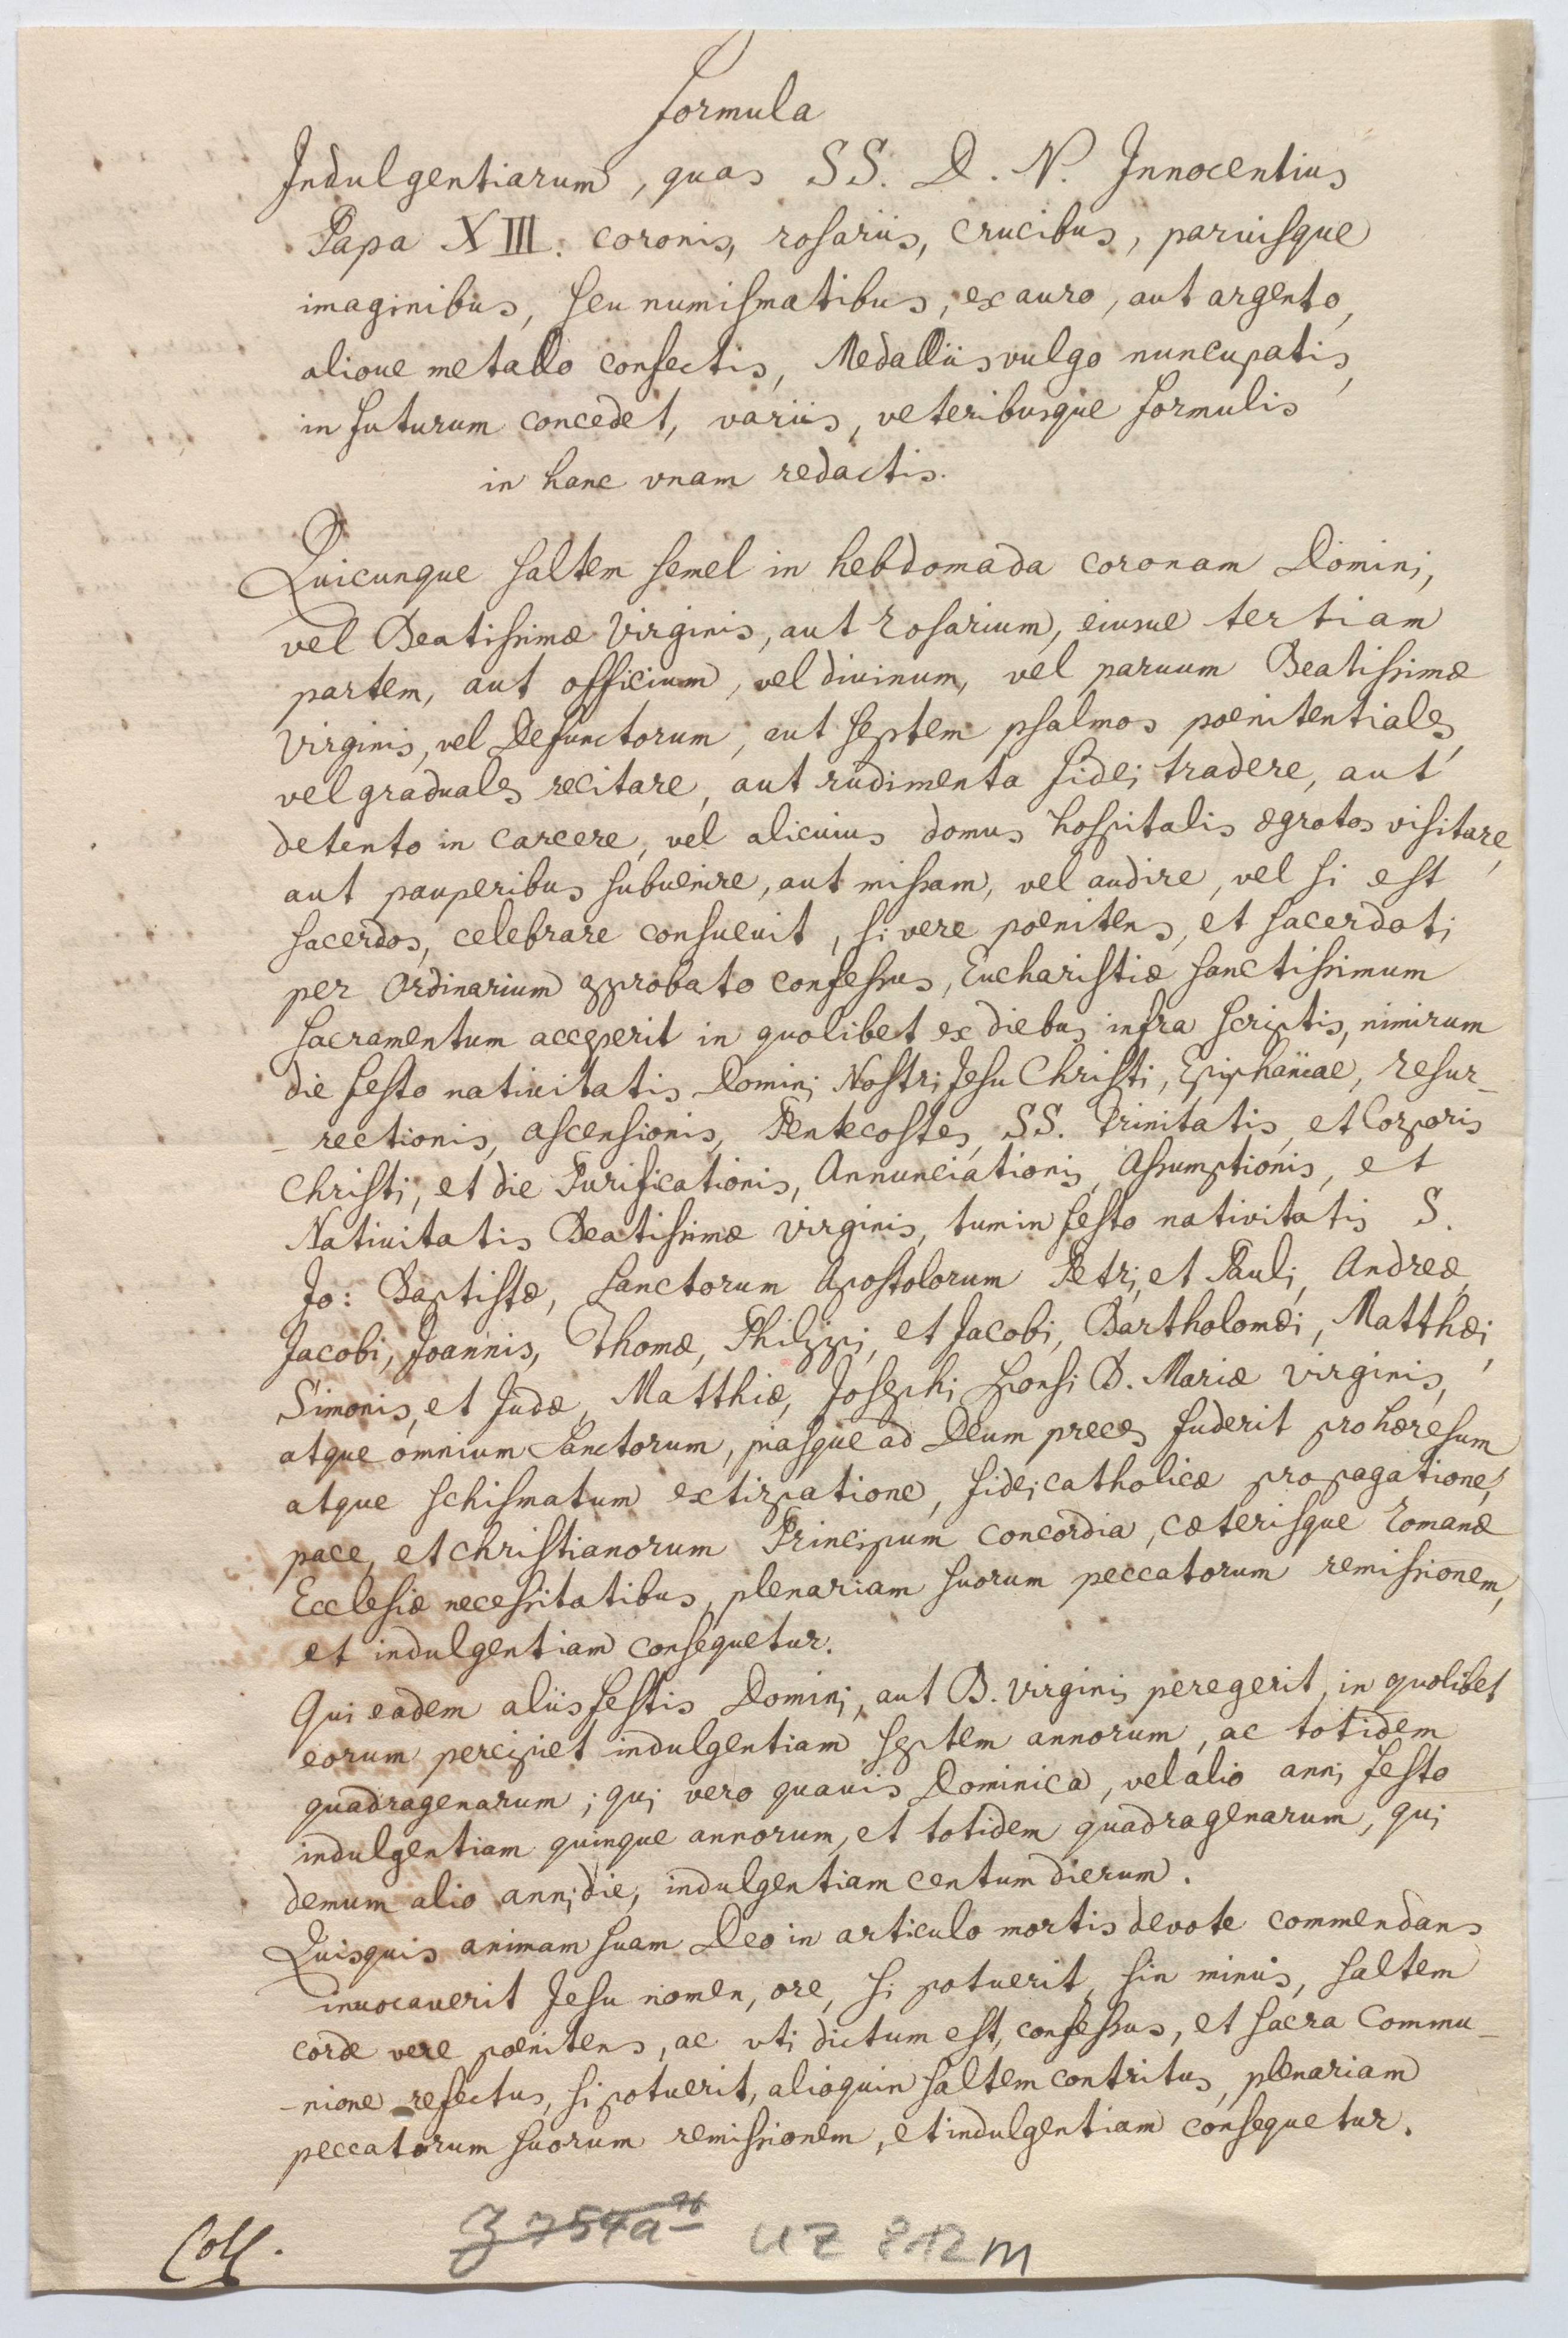 Formula
Indulgentiarum, quas SS. D. N. Innocentius
Papa XIII. coronis, rosariis, crucibus, paruisque
imaginibus, seu numismatibus, ex auro, aut argento,
alioue metallo confectis, Medalliis vulgo nuncupatis,
in futurum concedet, variis, veteribusque formulis
in hanc vnam redactis.
Quicunque saltem semel in hebdomada coronam Domini,
vel Beatissimæ Virginis, aut rosarium, eiusue tertiam
partem, aut officium, vel diuinum, vel paruum Beatissimæ
Virginis, vel Defunctorum, aut septem psalmos pœnitentiales,
vel graduales recitare, aut rudimenta fidei tradere, aut
detento in carcere, vel alicuius domus hospitalis ægrotos visitare,
aut pauperibus subuenire, aut missam, vel audire, vel si est
sacerdos, celebrare consueuit, si vere pœnitens, et sacerdoti
per Ordinarium approbato confessus, Eucharistiæ sanctissimum
sacramentum acceperit in quolibet ex diebus infra scriptis, nimirum
die festo natiuitatis Domini Nostri Jesu Christi, Epiphaniae, resur-
-rectionis, ascensionis, Pentecostes, SS. Trinitatis, et Corporis
Christi, et die Purificationis, Annunciationis, Assumptionis, et
Natiuitatis Beatissimæ Virginis, tum in festo nativitatis S.
Jo: Baptistæ, Sanctorum Apostolorum Petri, et Pauli, Andreæ,
Jacobi, Joannis, Thomæ, Philippi, et Jacobi, Bartholomæi, Matthæi,
Simonis, et Judæ, Matthiæ, Josephi sponsi B. Mariæ Virginis,
atque omnium Sanctorum, piasque ad Deum preces fuderit pro hæresum
atque schismatum extirpatione, fidei catholicæ propagatione,
pace, et christianorum Principum concordia, cæterisque romanæ
Ecclesiæ necessitatibus, plenariam suorum peccatorum remissionem,
et indulgentiam consequetur.
Qui eadem aliis festis Domini, aut B. Virginis peregerit, in quolibet
eorum percipiet indulgentiam septem annorum, ac totidem
quadragenarum; qui vero quauis Dominica, vel alio anni festo
indulgentiam quinque annorum, et totidem quadragenarum, qui
demum alio anni die, indulgentiam centum dierum.
Quisquis animam suam Deo in articulo mortis devote commendans
inuocauerit Jesu nomen, ore, si potuerit, sin minus, saltem
corde vere pœnitens, ac vti dictum est, confessus, et sacra Commu-
-nione refectus, si potuerit, alioquin saltem contritus, plenariam
peccatorum suorum remissionem, et indulgentiam consequetur.
UZ 812 m